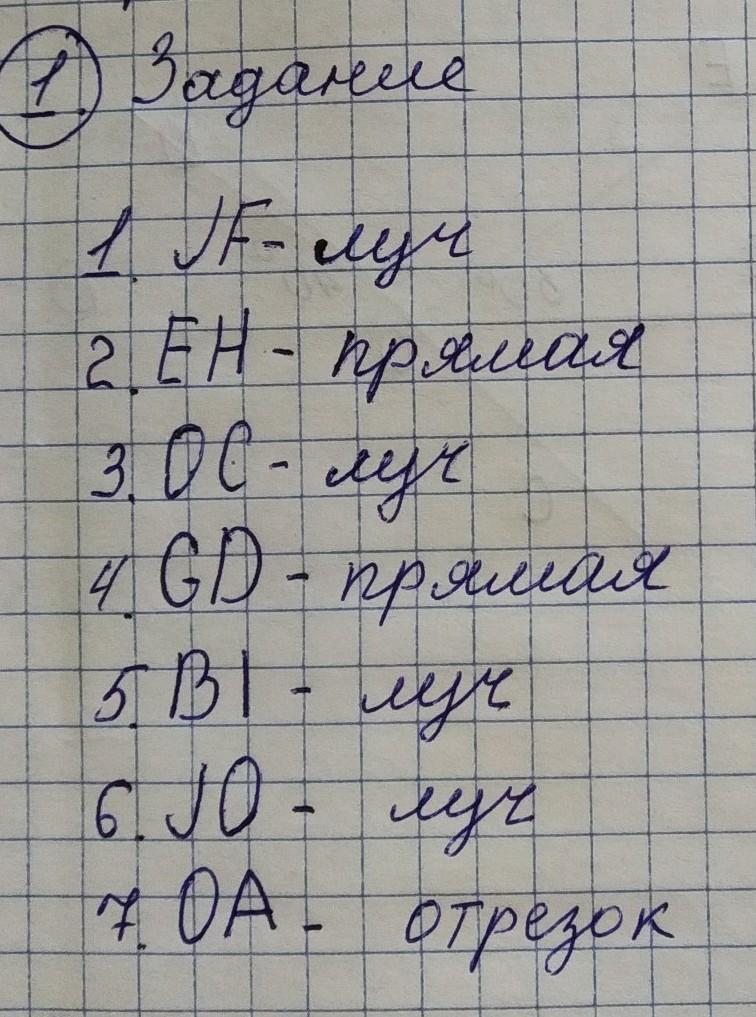 1. Задание
1. JF - луч
2. EH - прямая
3. OC - луч
4. GD - прямая
5. BI - луч
6. JO - луч
7. OA - отрезок